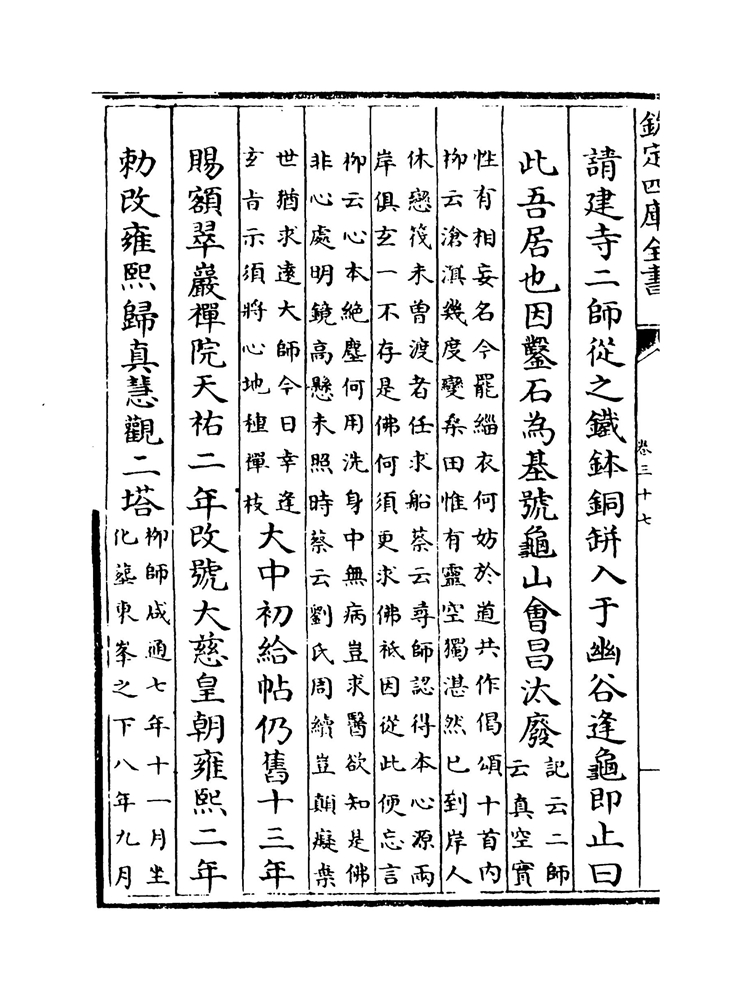 欽定四庫全書
卷三十七
請建寺二師從之鐵鉢銅缾入于幽谷逢龜即止曰
此吾居也因鑿石為基號龜山會昌汰廢
記云二師
云真空實
性有相妄名今罷緇衣何妨於道共作偈頌十首内
柳云滄溟幾度變桑田惟有靈空獨湛然已到岸人
休戀筏未曽渡者任求船蔡云尋師認得本心源兩
岸俱玄一不存是佛何須更求佛袛因從此便忘言
柳云心本絶塵何用洗身中無病豈求醫欲知是佛
非心處明鏡高懸未照時蔡云劉氏周續豈顛癡桒
世猶求逺大師今日幸逢
玄㫖示須將心地種禪枝
大中初給帖仍舊十三年
賜額翠巖禪院天祐二年改號大慈皇朝雍熙二年
勅改雍熙歸真慧觀二塔
柳師咸通七年十一月坐
化葬東峯之下八年九月